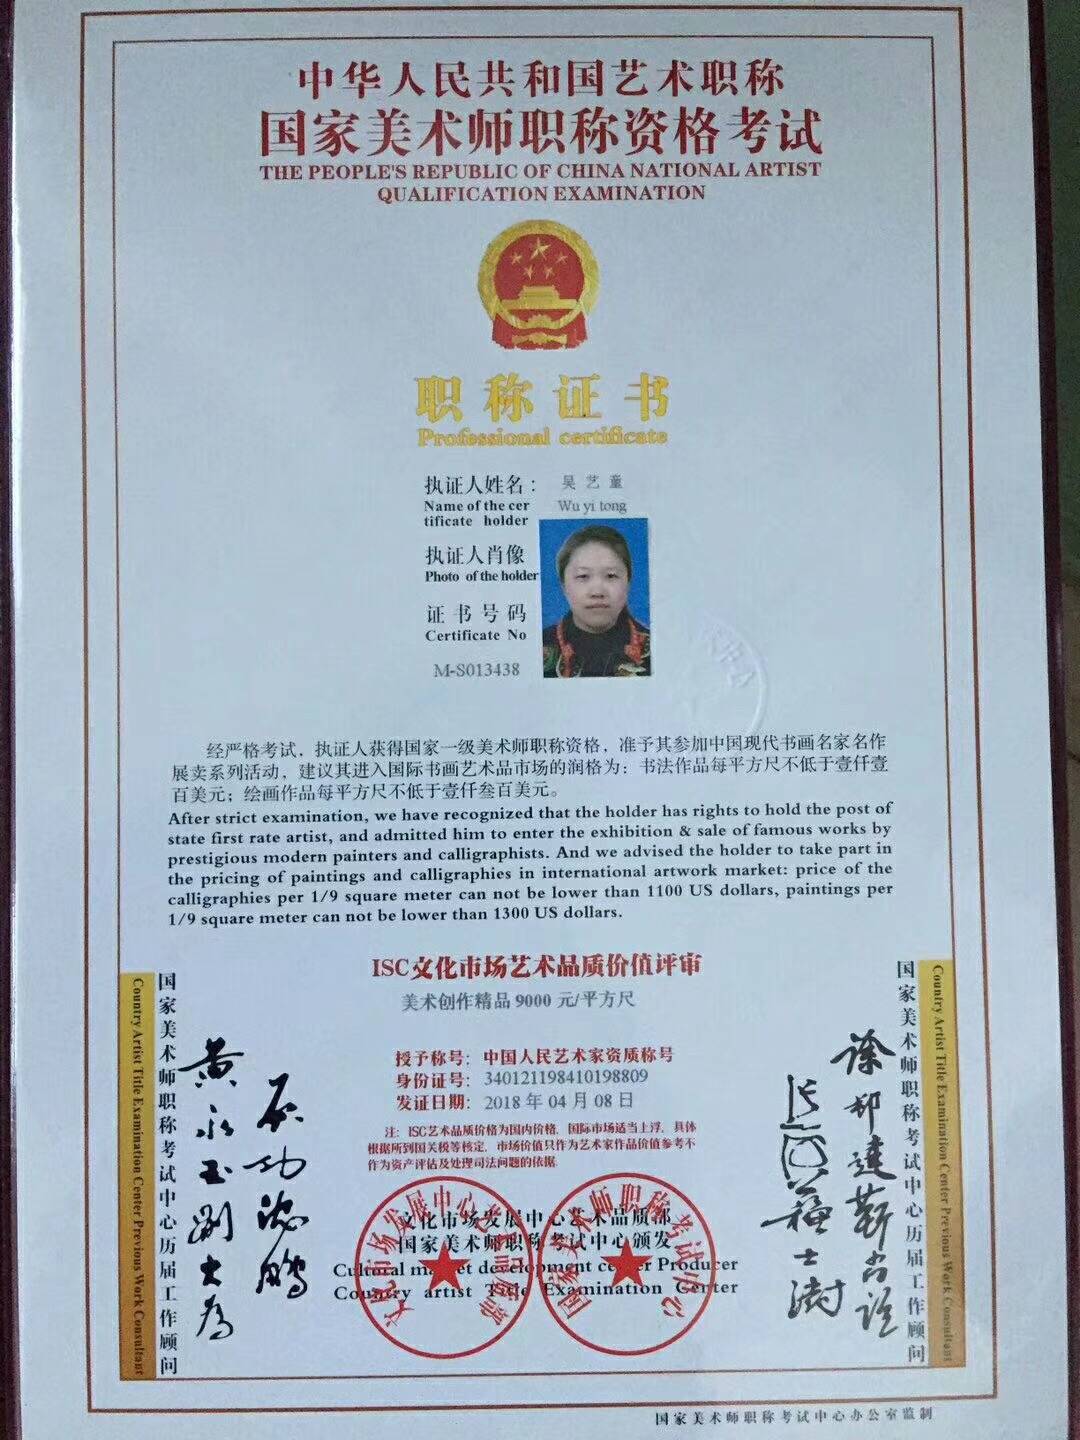 中华人民共和国艺术职称
国家美术师职称资格考试
THE PEOPLE'S REPUBLIC OF CHINA NATIONAL ARTIST
QUALIFICATION EXAMINATION
职称证书
Professional certificate
执证人姓名：
吴艺童
Name of the cer
tificate holder
Wu yi tong
执证人肖像
Photo of the holder
证书号码
Certificate No
M-S013438
经严格考试，执证人获得国家一级美术师职称资格，准予其参加中国现代书画名家名作
展卖系列活动，建议其进入国际书画艺术品市场的润格为：书法作品每平方尺不低于壹仟壹
百美元；绘画作品每平方尺不低于壹仟叁百美元。
After strict examination, we have recognized that the holder has rights to hold the post of
state first rate artist, and admitted him to enter the exhibition & sale of famous works by
prestigious modern painters and calligraphists. And we advised the holder to take part in
the pricing of paintings and calligraphies in international artwork market: price of the
calligraphies per 1/9 square meter can not be lower than 1100 US dollars, paintings per
1/9 square meter can not be lower than 1300 US dollars.
ISC文化市场艺术品质价值评审
美术创作精品 9000 元/平方尺
授予称号：中国人民艺术家资质称号
身份证号：340121198410198809
发证日期：2018 年 04 月 08 日
注：ISC艺术品质价格为国内价格，国际市场适当上浮，具体
根据所到国关税等核定，市场价值只作为艺术家作品价值参考不
作为资产评估及处理司法问题的依据.
文化市场发展中心艺术品质部
国家美术师职称考试中心颁发
Cultural market development center Producer
Country artist Title Examination Center
文化市场发展中心艺术品质部
国家美术师职称考试中心
Country Artist Title Examination Center Previous Work Consultant
国家美术师职称考试中心历届工作顾问
黄永玉 刘大为
沈鹏
国家美术师职称考试中心历届工作顾问
Country Artist Title Examination Center Previous Work Consultant
苏士澍
靳尚谊
国家美术师职称考试中心办公室监制